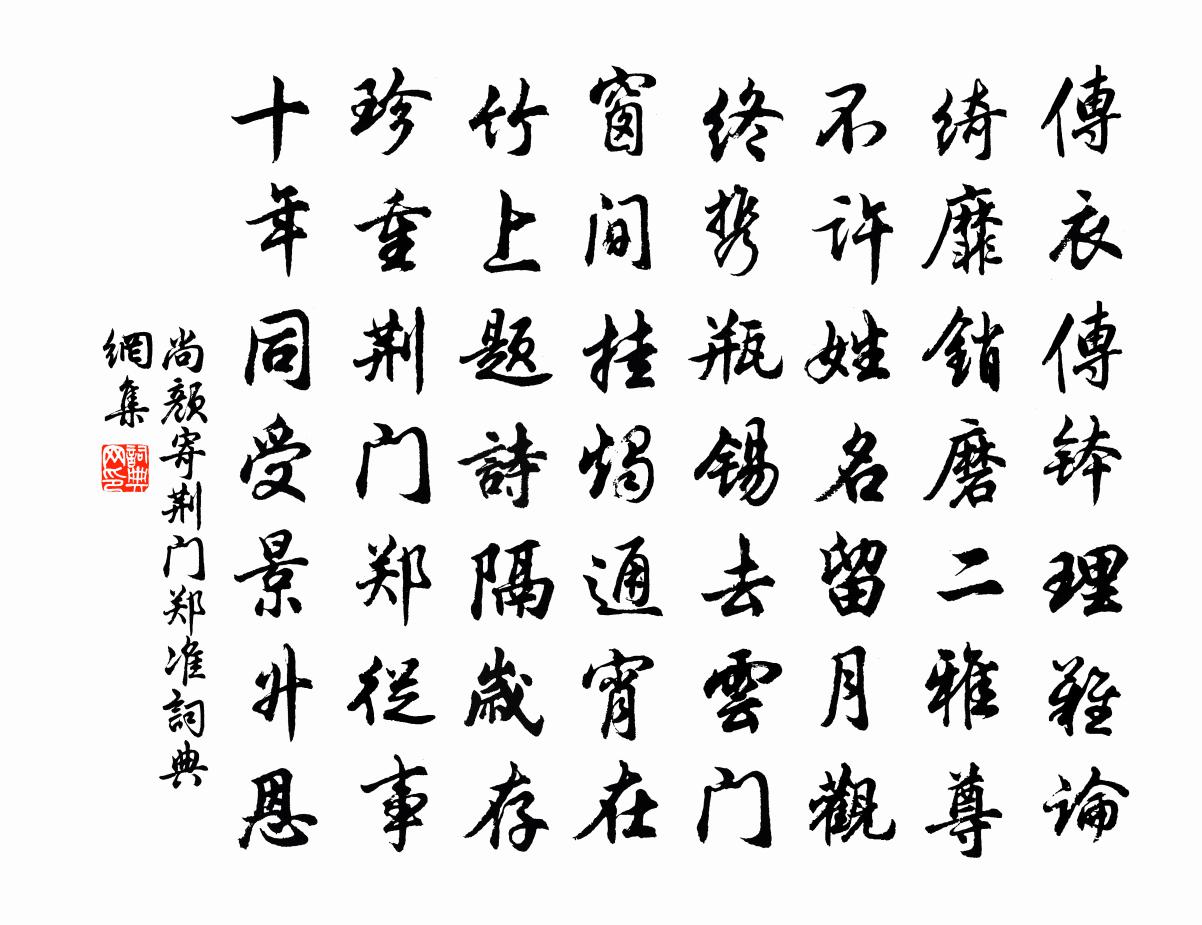 傳衣傳钵理難論
綺靡銷磨二雅尊
不許姓名留月觀
终携瓶锡去雲门
窗间挂燭通宵在
竹上题詩隔歲存
珍重荆门郑從事
十年同受景升恩
尚颜寄荆门郑准詞典
網集
詞典
网印